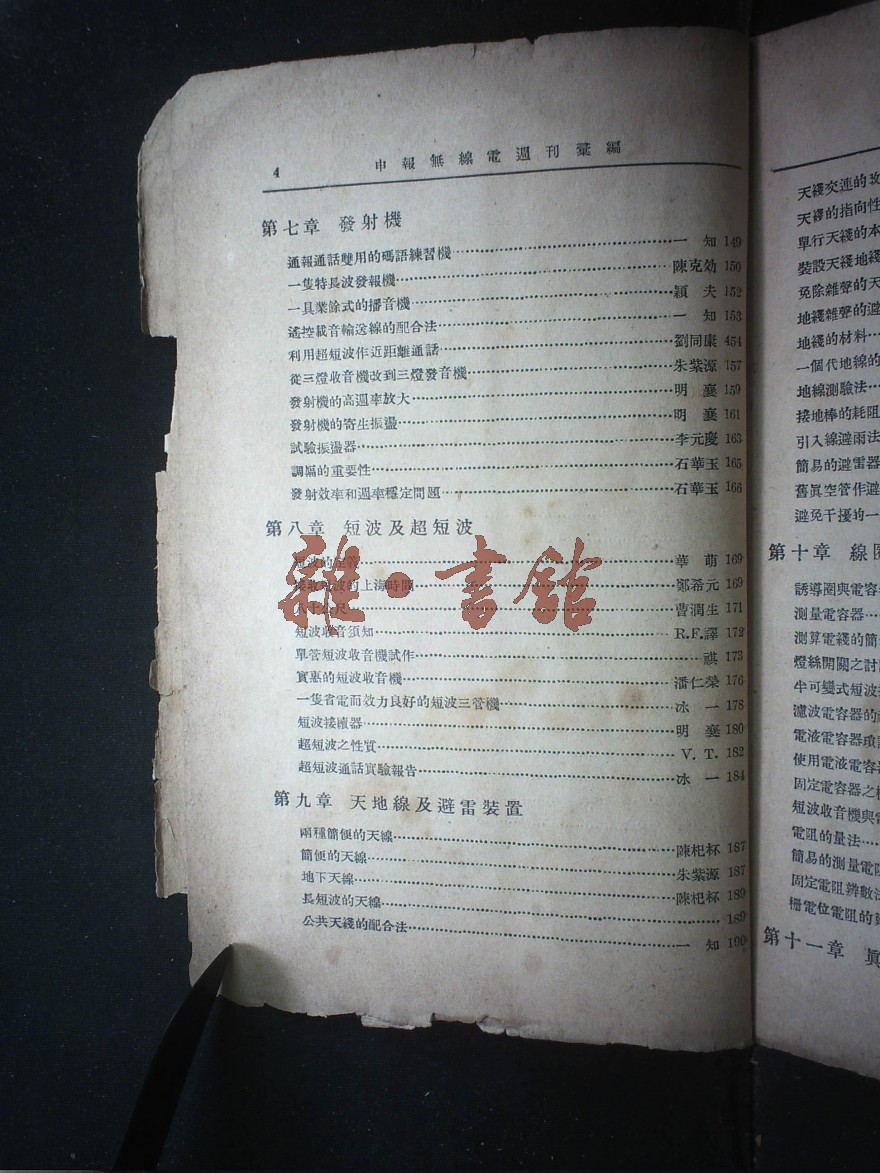 4 申報無線電週刊彙編
第七章 發射機
通報通話雙用的碼語練習機 一知 149
一隻特長波發報機 陳克効 150
一具業餘式的播音機 穎夫 152
遙控載音輸送線的配合法 一知 153
利用超短波作近距離通話 劉同康 454
從三燈收音機改到三燈發音機 朱紫源 157
發射機的高週率放大 明襄 159
發射機的寄生振盪 明襄 161
試驗振盪器 李元慶 163
調幅的重要性 石華玉 165
發射效率和週率穩定問題 石華玉 166
第八章 短波及超短波
短波的定義 華萌 169
接收短波的上海時間 鄭希元 169
八十公尺 曹潤生 171
短波收音須知 R.F.譯 172
單管短波收音機試作 祺 173
實惠的短波收音機 潘仁榮 176
一隻省電而效力良好的短波三管機 冰一 178
短波接續器 明襄 180
超短波之性質 V. T. 182
超短波通話實驗報告 冰一 184
第九章 天地線及避雷裝置
兩種簡便的天線 陳杞杯 187
簡便的天線 朱紫源 187
地下天線 陳杞杯 189
長短波的天線 189
公共天綫的配合法 一知 190
天綫交連的攻
天綫的指向性
單行天綫的本
裝設天綫地綫
免除雜聲的天
地綫雜聲的避
地綫的材料
一個代地線的
地線測驗法
接地棒的耗阻
引入線避雨法
簡易的避雷器
舊眞空管作避
避免干擾的一
第十章 線圈
誘導圈與電容
測量電容器
測算電綫的簡
燈絲開關之討
半可變式短波
濾波電容器的
電液電容器瑣
使用電液電容
固定電容器之
短波收音機與
電阻的量法
簡易的測量電阻
固定電阻辨數法
柵電位電阻的
第十一章 眞
雜·書館